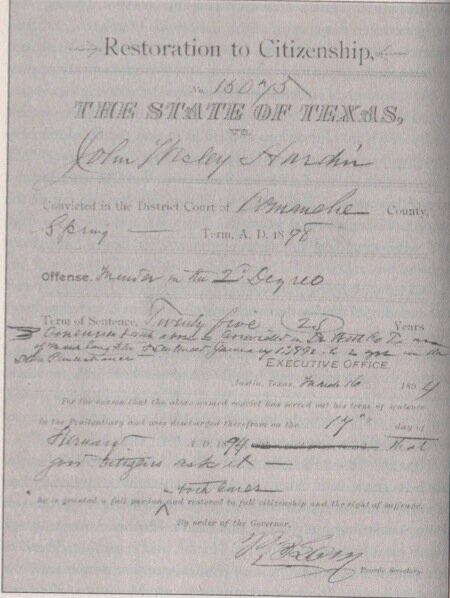 Restoration to Citizenship,
No. 15075
THE STATE OF TEXAS,
VS.
John Wesley Hardin
Convicted in the District Court of Comanche County,
Spring — Term, A. D. 1898
Offense. Murder in the 2d Degree
Term of Sentence, Twenty five 25 Years
January 1, 1892. 2 yrs in the
EXECUTIVE OFFICE,
Austin, Texas, March 16 1894
For the reason that the above named convict has served out his term of sentence
in the Penitentiary and was discharged therefrom on the 17th day of
A. D. 1894 that
good citizens ask it —
both cases
he is granted a full pardon and restored to full citizenship and the right of suffrage.
By order of the Governor,
Private Secretary.